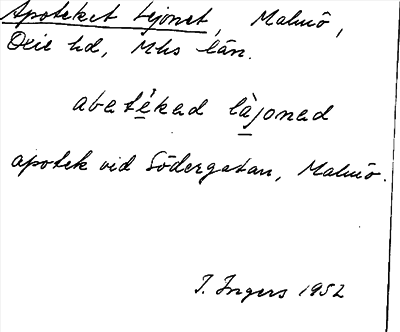 Apoteket Lejonet, Malmö,
Oxie hd, Mhs län.
abaté̱kad là̱jonad
apotek vid Södergatan, Malmö.
I. Ingers 1952